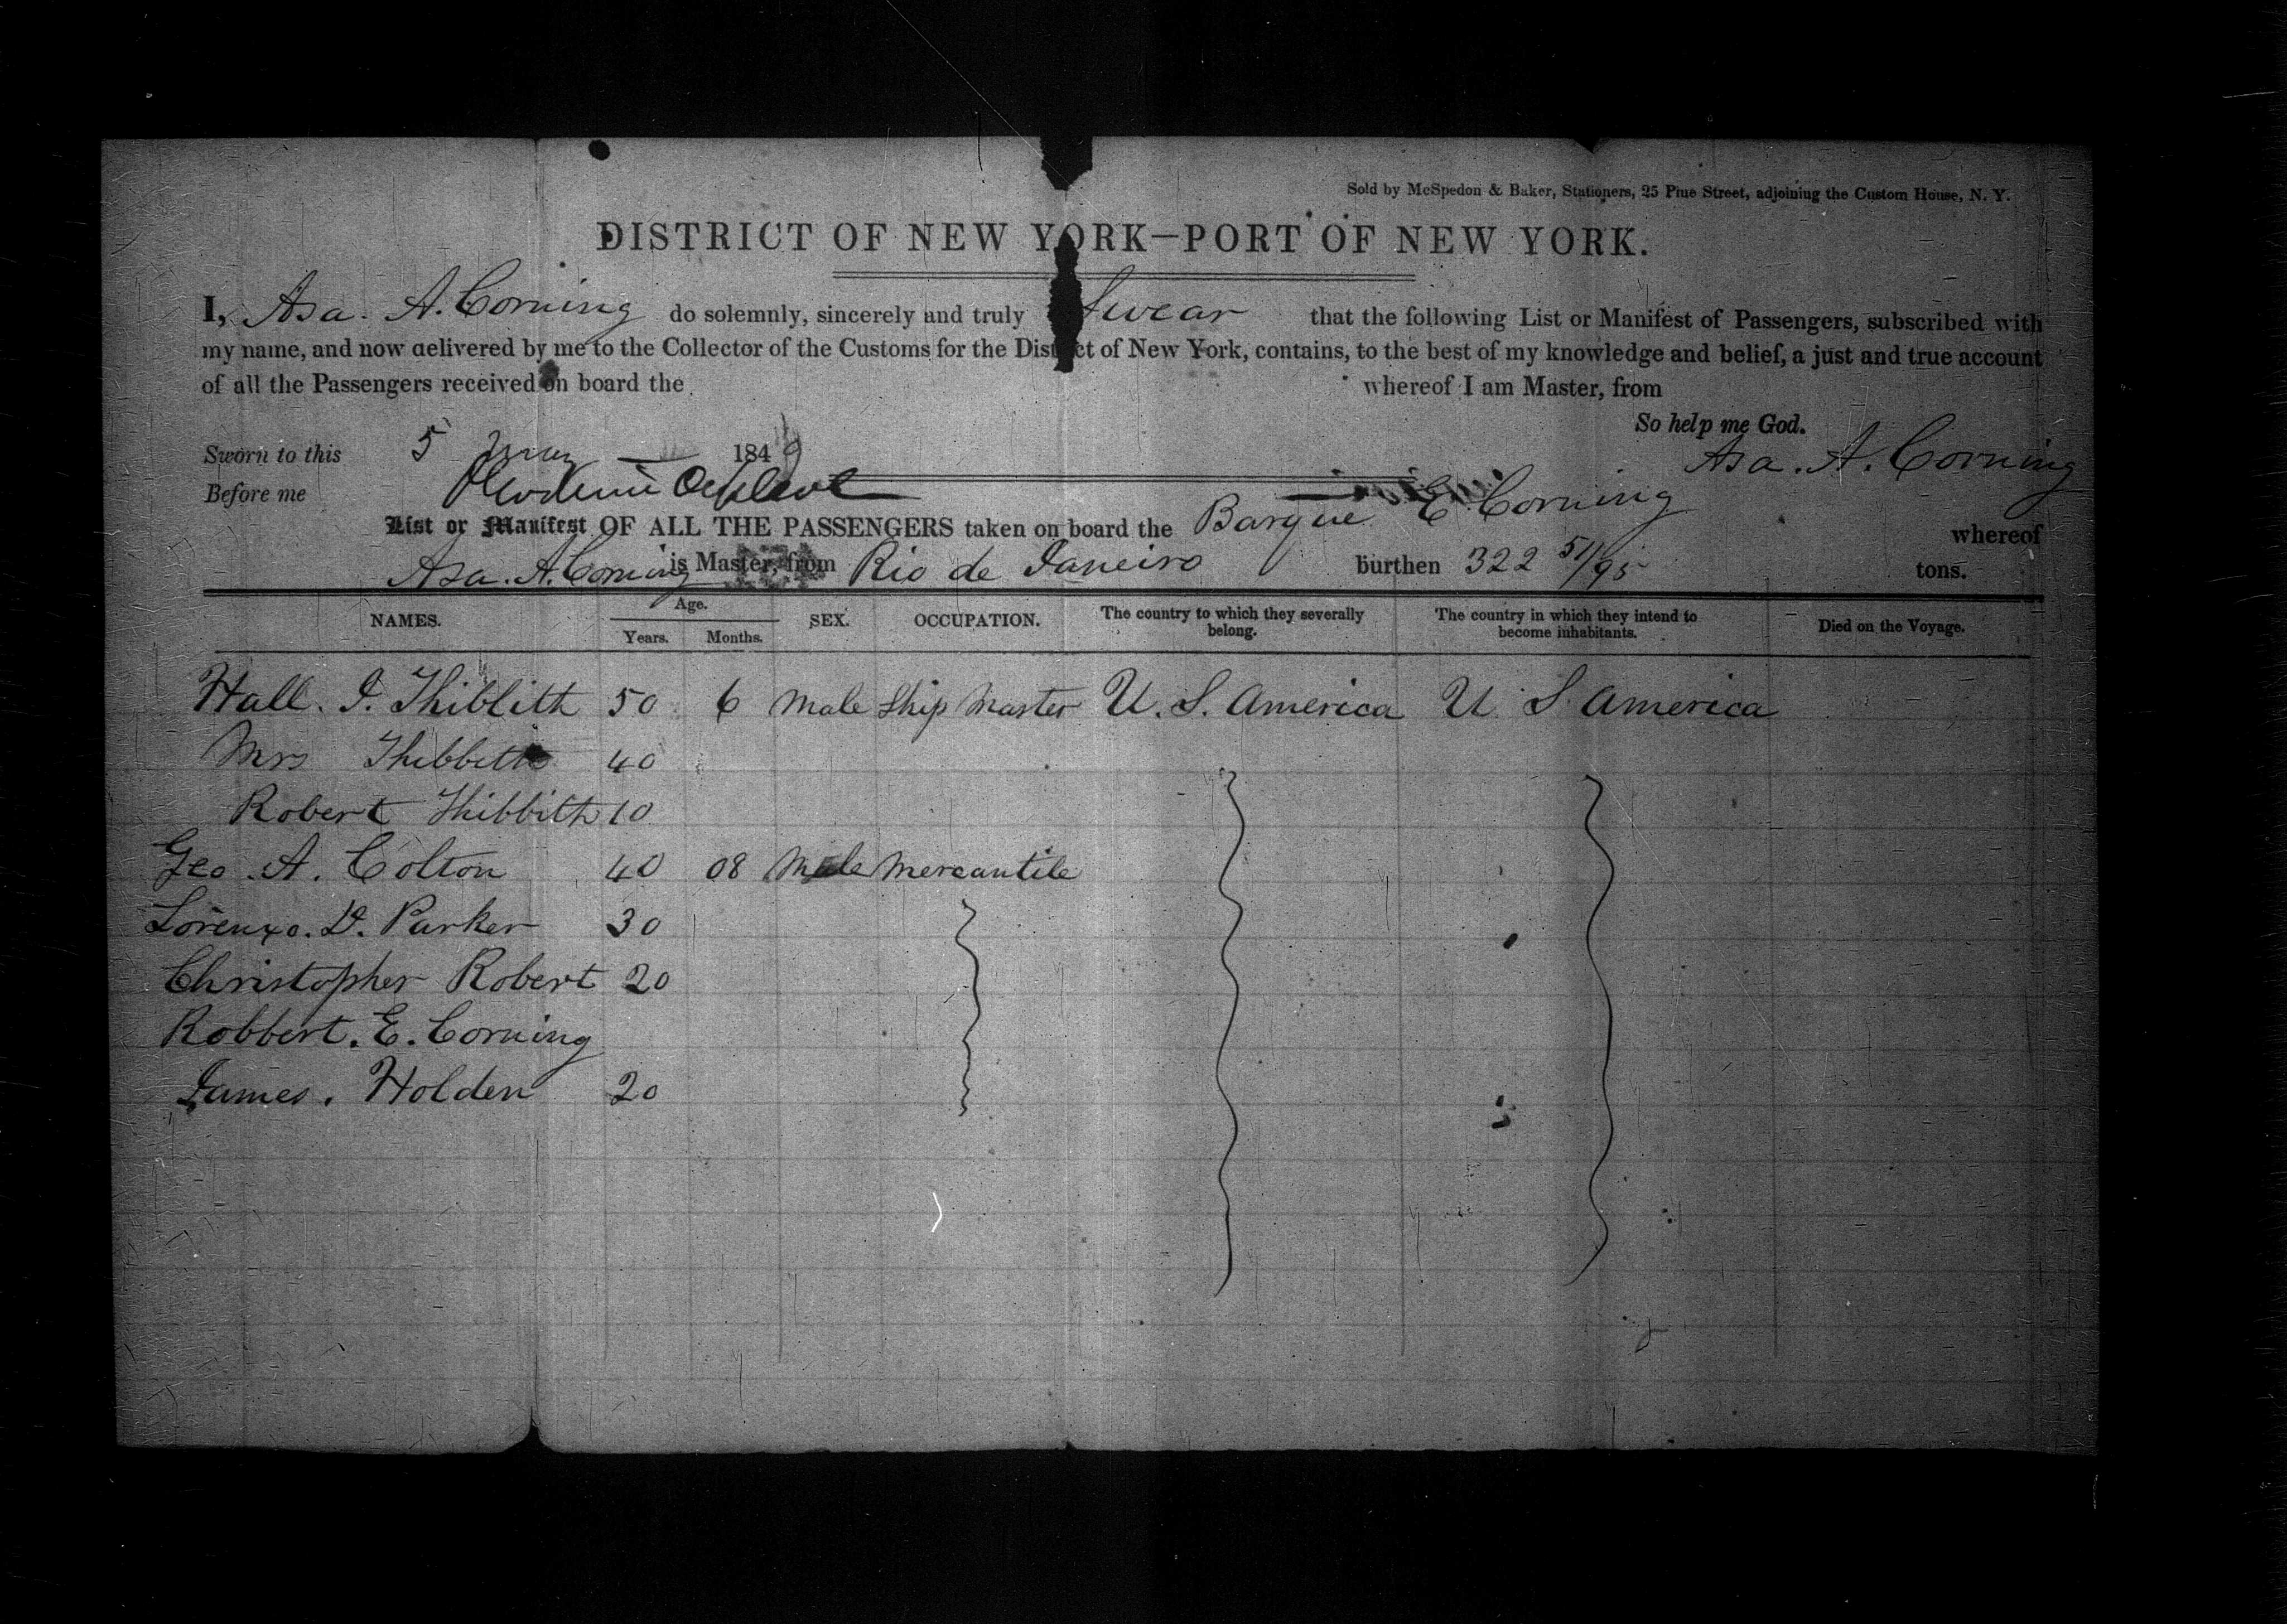 Sold by McSpedon & Baker, Stationers, 25 Pine Street, adjoining the Custom House, N. Y.
DISTRICT OF NEW YORK—PORT OF NEW YORK.
I, Asa. A. Corning do solemnly, sincerely and truly Swear that the following List or Manifest of Passengers, subscribed with
my name, and now delivered by me to the Collector of the Customs for the District of New York, contains, to the best of my knowledge and belief, a just and true account
of all the Passengers received on board the whereof I am Master, from
So help me God.
Sworn to this 5 May 184 Asa. A. Corning
Before me
List or Manifest OF ALL THE PASSENGERS taken on board the Barque E Corning whereof
Asa. A. Corning is Master, from Rio de Janeiro burthen 322 51/95 tons.
NAMES. Age. Years. Months. SEX. OCCUPATION. The country to which they severally belong. The country in which they intend to become inhabitants. Died on the Voyage.
Hall. J. Thiblith 50 6 Male Ship Master U. S. America U S America
Mrs Thibbith 40
Robert Thibbith 10
Geo. A. Colton 40 08 Male Mercantile
Lorenzo. D. Parker 30
Christopher Robert 20
Robbert. E. Corning
James. Holden 20